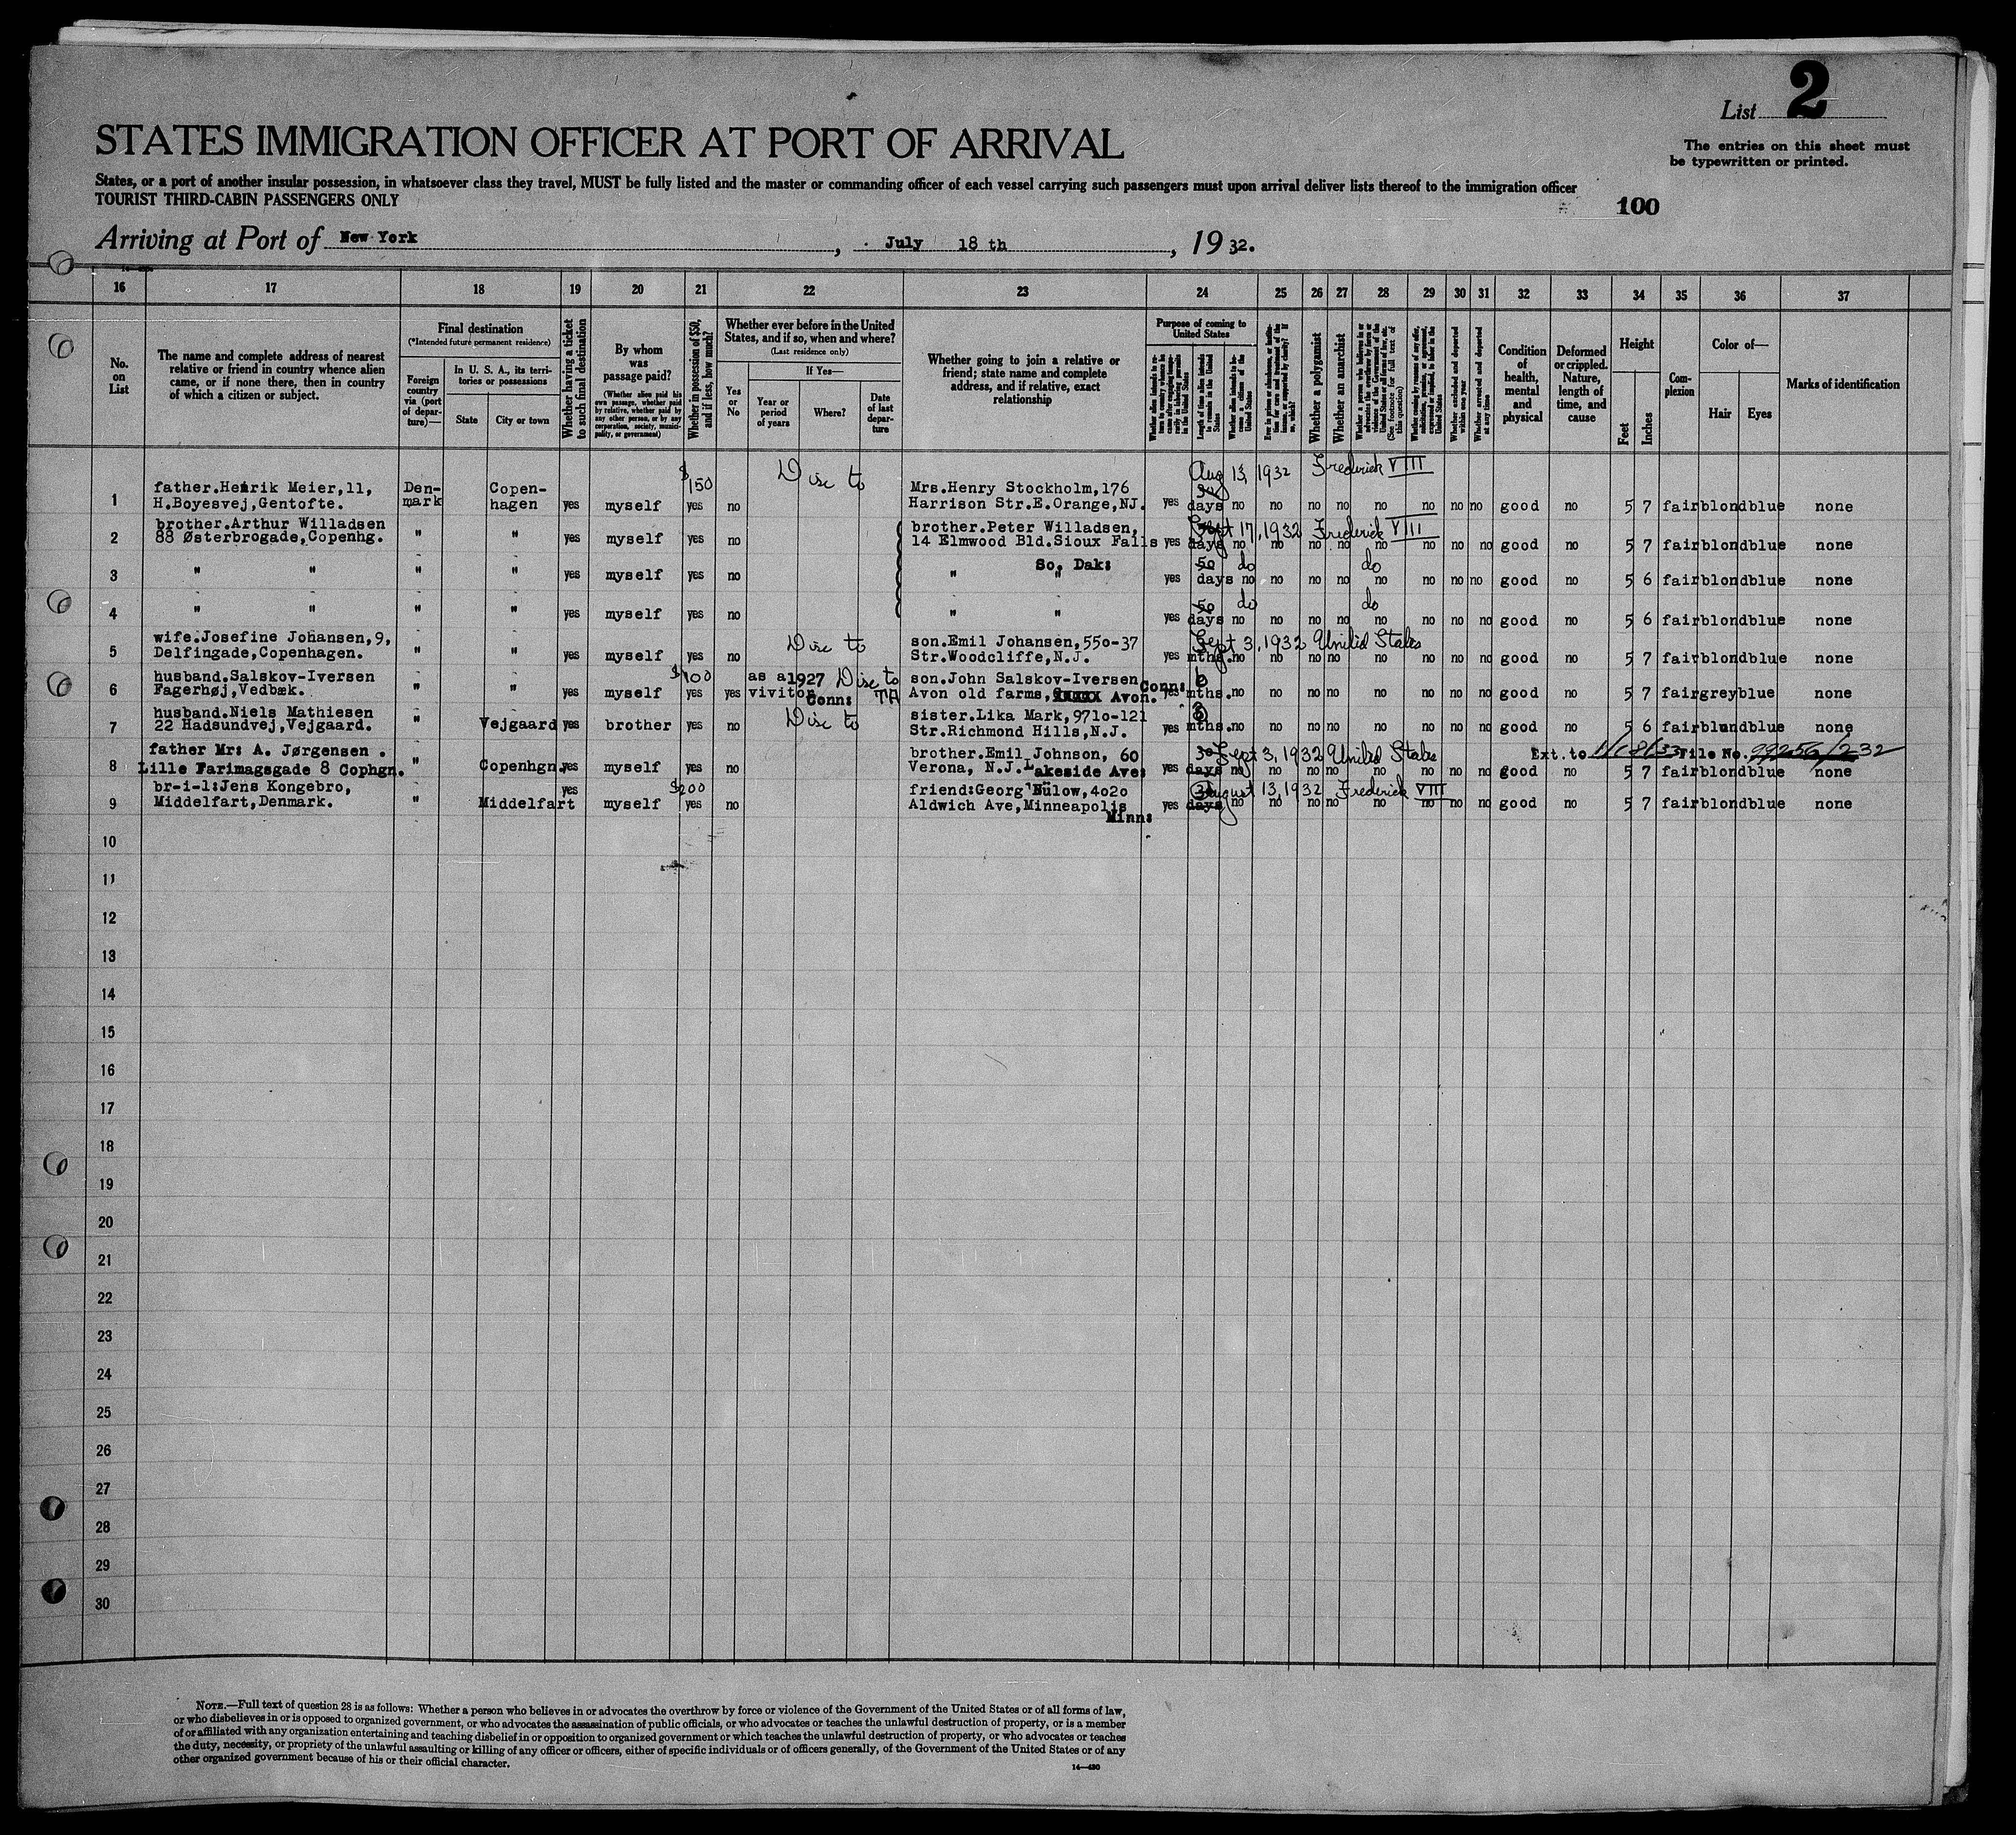 List 2
STATES IMMIGRATION OFFICER AT PORT OF ARRIVAL
The entries on this sheet must
be typewritten or printed.
States, or a port of another insular possession, in whatsoever class they travel, MUST be fully listed and the master or commanding officer of each vessel carrying such passengers must upon arrival deliver lists thereof to the immigration officer
TOURIST THIRD-CABIN PASSENGERS ONLY
100
Arriving at Port of New York, July 18 th, 1932.
16 17 18 19 20 21 22 23 24 25 26 27 28 29 30 31 32 33 34 35 36 37
No.
on
List
The name and complete address of nearest
relative or friend in country whence alien
came, or if none there, then in country
of which a citizen or subject.
Final destination
(*Intended future permanent residence)
Foreign
country
via (port
of depar-
ture)—
In U. S. A., its terri-
tories or possessions
State
City or town
Whether having a ticket
to such final destination
By whom
was
passage paid?
(Whether alien paid his
own passage, whether paid
by relative, whether paid by
any other person, or by any
corporation, society, munici-
pality, or government)
Whether in possession of $50,
and if less, how much?
Whether ever before in the United
States, and if so, when and where?
(Last residence only)
Yes
or
No
If Yes—
Year or
period
of years
Where?
Date
of last
depar-
ture
Whether going to join a relative or
friend; state name and complete
address, and if relative, exact
relationship
Purpose of coming to
United States
Length of time alien intends
to remain in the United
States
Whether alien intends to be-
come a citizen of the
United States
Whether a polygamist
Whether an anarchist
(See footnote for full text of
this question)
Whether excluded and deported
within one year
Whether arrested and deported
at any time
Condition
of
health,
mental
and
physical
Deformed
or crippled.
Nature,
length of
time, and
cause
Height
Feet
Inches
Com-
plexion
Color of—
Hair
Eyes
Marks of identification
$150 Disc to Aug 13, 1932 Frederick VIII
father.Henrik Meier,11, Den- Copen- Mrs.Henry Stockholm,176
1 H.Boyesvej,Gentofte. mark hagen yes myself yes no Harrison Str.E.Orange,NJ. yes days no no no no no no no no good no 5 7 fair blond blue none
brother.Arthur Willadsen brother.Peter Willadsen, Sept 17, 1932 Frederick VIII
2 88 Østerbrogade,Copenhg. " " yes myself yes no 14 Elmwood Bld.Sioux Falls yes days no no no no no no no no good no 5 7 fair blond blue none
So. Dak: 50 do do
3 " " " " yes myself yes no " " yes days no no no no no no no no good no 5 6 fair blond blue none
50 do do
4 " " " " yes myself yes no " " yes days no no no no no no no no good no 5 6 fair blond blue none
wife.Josefine Johansen,9, Disc to son.Emil Johansen,550-37 Sept 3, 1932 United States
5 Delfingade,Copenhagen. " " yes myself yes no Str.Woodcliffe,N.J. yes mths. no no no no no no no no good no 5 7 fair blond blue none
husband.Salskov-Iversen $100 as a 1927 Disc to son.John Salskov-Iversen Conn: 6
6 Fagerhøj,Vedbæk. " " yes myself yes yes vivitor Conn: Avon old farms, Avon. yes mths. no no no no no no no no good no 5 7 fair grey blue none
husband.Niels Mathiesen Disc to sister.Lika Mark,9710-121 3
7 22 Hadsundvej,Vejgaard. " Vejgaard yes brother yes no Str.Richmond Hills,N.J. yes mths. no no no no no no no no good no 5 6 fair blund blue none
father Mr: A. Jørgensen . brother.Emil Johnson, 60 30 Sept 3, 1932 United States Ext. to File No. 99256/232
8 Lille Farimagsgade 8 Cophgn. " Copenhgn. yes myself yes no Verona, N.J. Lakeside Ave: yes days no no no no no no no no good no 5 7 fair blond blue none
br-i-l:Jens Kongebro, yes $200 friend:Georg Bülow,4020 August 13, 1932 Frederick VIII
9 Middelfart,Denmark. " Middelfart myself yes no Aldwich Ave,Minneapolis yes days no no no no no no no no good no 5 7 fair blond blue none
Minn:
10
11
12
13
14
15
16
17
18
19
20
21
22
23
24
25
26
27
28
29
30
NOTE.—Full text of question 28 is as follows: Whether a person who believes in or advocates the overthrow by force or violence of the Government of the United States or of all forms of law,
or who disbelieves in or is opposed to organized government, or who advocates the assassination of public officials, or who advocates or teaches the unlawful destruction of property, or is a member
of or affiliated with any organization entertaining and teaching disbelief in or opposition to organized government or which teaches the unlawful destruction of property, or who advocates or teaches
the duty, necessity, or propriety of the unlawful assaulting or killing of any officer or officers, either of specific individuals or of officers generally, of the Government of the United States or of any
other organized government because of his or their official character.
14—480